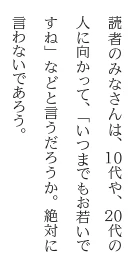 読者のみなさんは、10代や、20代の
人に向かって、「いつまでもお若いで
すね」などと言うだろうか。絶対に
言わないであろう。